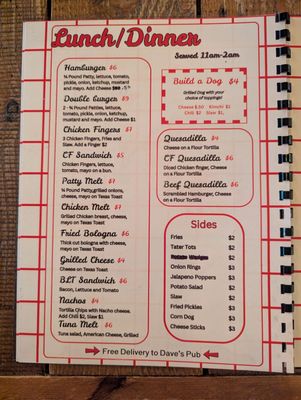 Lunch/Dinner
Served 11am-2am
Hamburger $6
¾ Pound Patty, lettuce, tomato,
pickle, onion, ketchup, mustard
and mayo. Add Cheese
Double burger $9
2 - ¾ Pound Patties, lettuce,
tomato, pickle, onion, ketchup,
mustard and mayo. Add Cheese $1
Chicken Fingers $7
3 Chicken Fingers, Fries and
Slaw. Add a Finger $2
CF Sandwich $5
Chicken Fingers, lettuce,
tomato, mayo on a bun.
Patty Melt $7
¾ Pound Patty,grilled onions,
cheese, mayo on Texas Toast
Chicken Melt $7
Grilled Chicken breast, cheese,
mayo on Texas Toast
Fried Bologna $6
Thick cut bologna with cheese,
mayo on Texas Toast
Grilled Cheese $4
Cheese on Texas Toast
BLT Sandwich $6
Bacon, Lettuce and Tomato
Nachos $4
Tortilla Chips with Nacho cheese.
Add Chili $2, Slaw $1
Tuna Melt $6
Tuna salad, American Cheese, Grilled
Build a Dog $4
Grilled Dog with your
choice of toppings!
Cheese $.50 Kimchi $1
Chili $2 Slaw $1,
Quesadilla $4
Cheese on a Flour Tortilla
CF Quesadilla $6
Diced Chicken finger, Cheese
on a Flour Tortilla
Beef Quesadilla $6
Scrambled Hamburger, Cheese
on a Flour Tortilla
Sides
Fries $2
Tater Tots $2
$2
Onion Rings $3
Jalapeno Poppers $3
Potato Salad $2
Slaw $2
Fried Pickles $3
Corn Dog $3
Cheese Sticks $3
Free Delivery to Dave's Pub